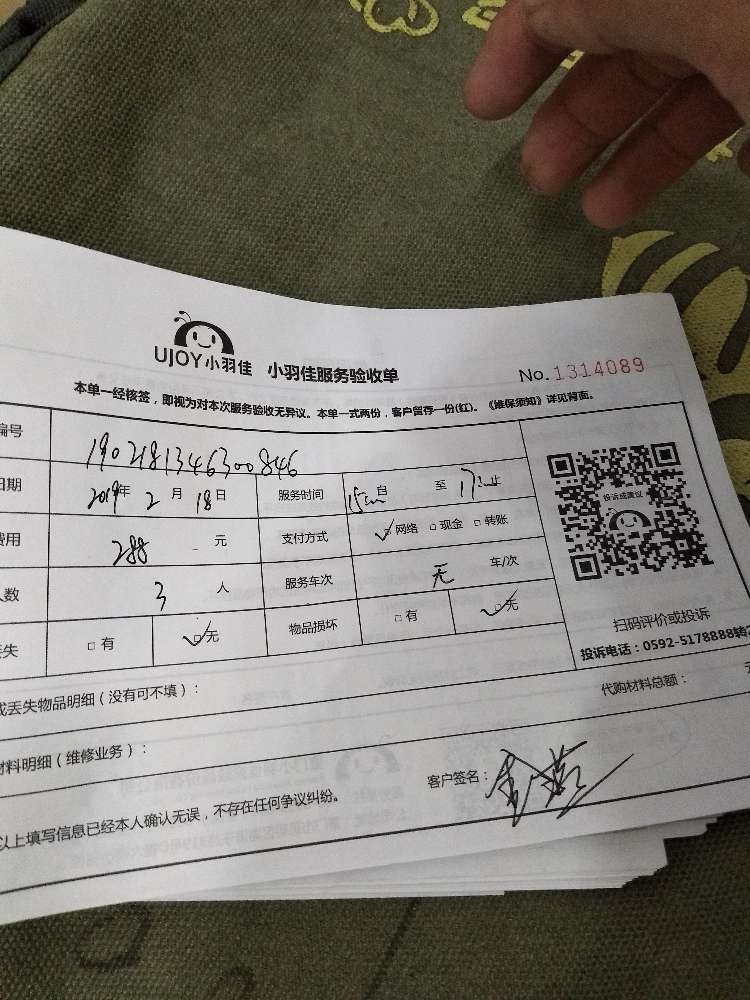 UJOY小羽佳 小羽佳服务验收单 No. 1314089
本单一经核签，即视为对本次服务验收无异议。本单一式两份，客户留存一份(红)。《维保须知》详见背面。
编号 1902181346300846
日期 2019年 2月 18日 服务时间 15 自 至 17 止
费用 288 元 支付方式 ✓□网络 □现金 □转账
人数 3 人 服务车次 无 车/次
丢失 □有 ✓□无 物品损坏 □有 ✓□无
投诉或建议
扫码评价或投诉
投诉电话：0592-5178888转
或丢失物品明细（没有可不填）： 代购材料总额：
材料明细（维修业务）：
以上填写信息已经本人确认无误，不存在任何争议纠纷。 客户签名：